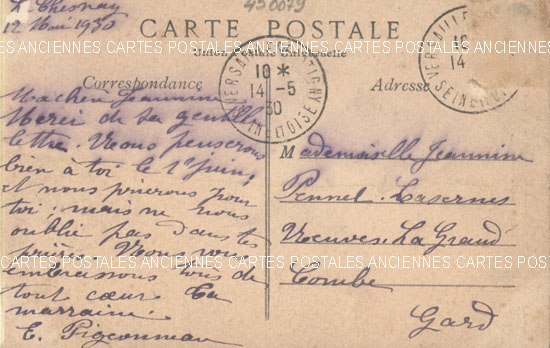 Le Chesnay
12 Mai 1930
430079
CARTE POSTALE
Correspondance
Adresse
VERSAILLES
10 *
14 -5
30
SEINE ET OISE
VERSAILLE
10
14
SEINE
Ma chère Jeannine
Merci de ta gentille
lettre. Nous penserons
bien à toi le 1er juin,
et nous prierons pour
toi; mais ne nous
oublie pas dans tes
prières.
embrassons tous de
tout cœur. Ta
marraine.
E. Pigeonneau
Mademoiselle Jeannine
Pennel. Casernes
Neuves. La Grand
Combe
Gard
ANCIENNES CARTES POSTALES ANCIENNES CARTES POSTALES ANCIENNES CARTES
CARTES POSTALES ANCIENNES CARTES POSTALES ANCIENNES CARTES POSTALES